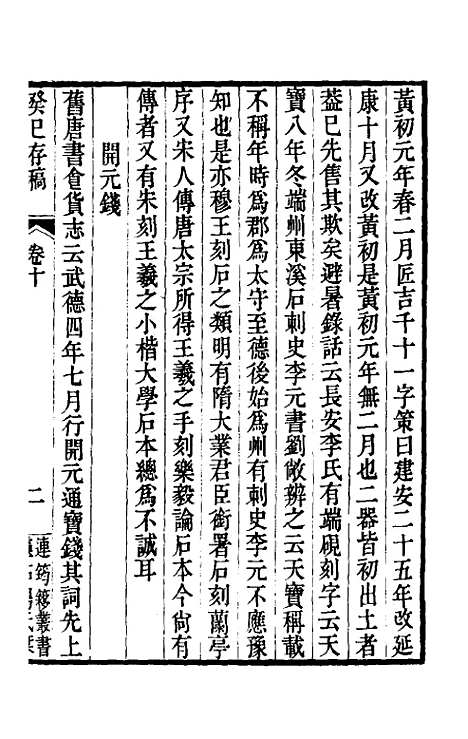 黃初元年春二月匠吉千十一字策曰建安二十五年改延
康十月又改黃初是黃初元年無二月也二器皆初出土者
葢已先售其欺矣避暑錄話云長安李氏有端硯刻字云天
寶八年冬端州東溪石刺史李元書劉敞辨之云天寶稱載
不稱年時爲郡爲太守至德後始爲州有刺史李元不應豫
知也是亦穆王刻石之類明有隋大業君臣銜署石刻蘭亭
序又宋人傳唐太宗所得王羲之手刻樂毅論石本今尙有
傳者又有朱刻王羲之小楷大學石本總爲不誠耳
開元錢
舊唐書食貨志云武德四年七月行開元通寶錢其詞先上
癸巳存稿 卷十 二 連筠簃叢書